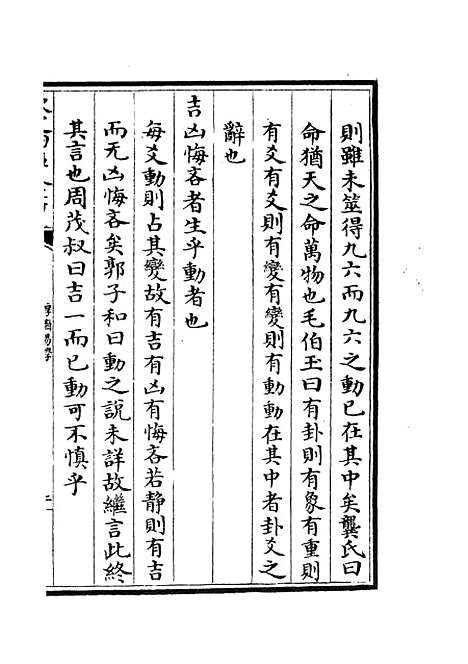 則雖未筮得九六而九六之動已在其中矣龔氏曰
命猶天之命萬物也毛伯玉曰有卦則有象有重則
有爻有爻則有變有變則有動動在其中者卦爻之
辭也
吉凶悔吝者生乎動者也
每爻動則占其變故有吉有凶有悔吝若静則有吉
而无凶悔吝矣郭子和曰動之說未詳故繼言此終
其言也周茂叔曰吉一而已動可不慎乎